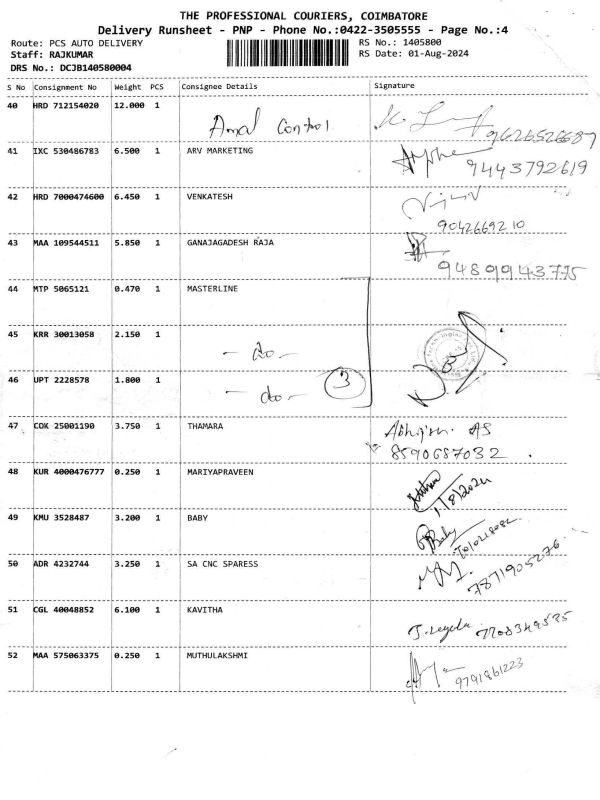 THE PROFESSIONAL COURIERS, COIMBATORE
Delivery Runsheet - PNP - Phone No.:0422-3505555 - Page No.:4
Route: PCS AUTO DELIVERY RS No.: 1405800
Staff: RAJKUMAR RS Date: 01-Aug-2024
DRS No.: DCJB140580004
S No Consignment No Weight PCS Consignee Details Signature
40 HRD 712154020 12.000 1
Control 9626526687
41 IXC 530486783 6.500 1 ARV MARKETING
9443792619
42 HRD 7000474600 6.450 1 VENKATESH
9042669210
43 MAA 109544511 5.850 1 GANAJAGADESH RAJA
9489943775
44 MTP 5065121 0.470 1 MASTERLINE
45 KRR 30013058 2.150 1
- do -
46 UPT 2228578 1.800 1
- do - 3
47 COK 25001190 3.750 1 THAMARA
AS
8590687032
48 KUR 4000476777 0.250 1 MARIYAPRAVEEN
1/8/2024
49 KMU 3528487 3.200 1 BABY
Baby
50 ADR 4232744 3.250 1 SA CNC SPARESS
7871905276
51 CGL 40048852 6.100 1 KAVITHA
52 MAA 575063375 0.250 1 MUTHULAKSHMI
9791861223